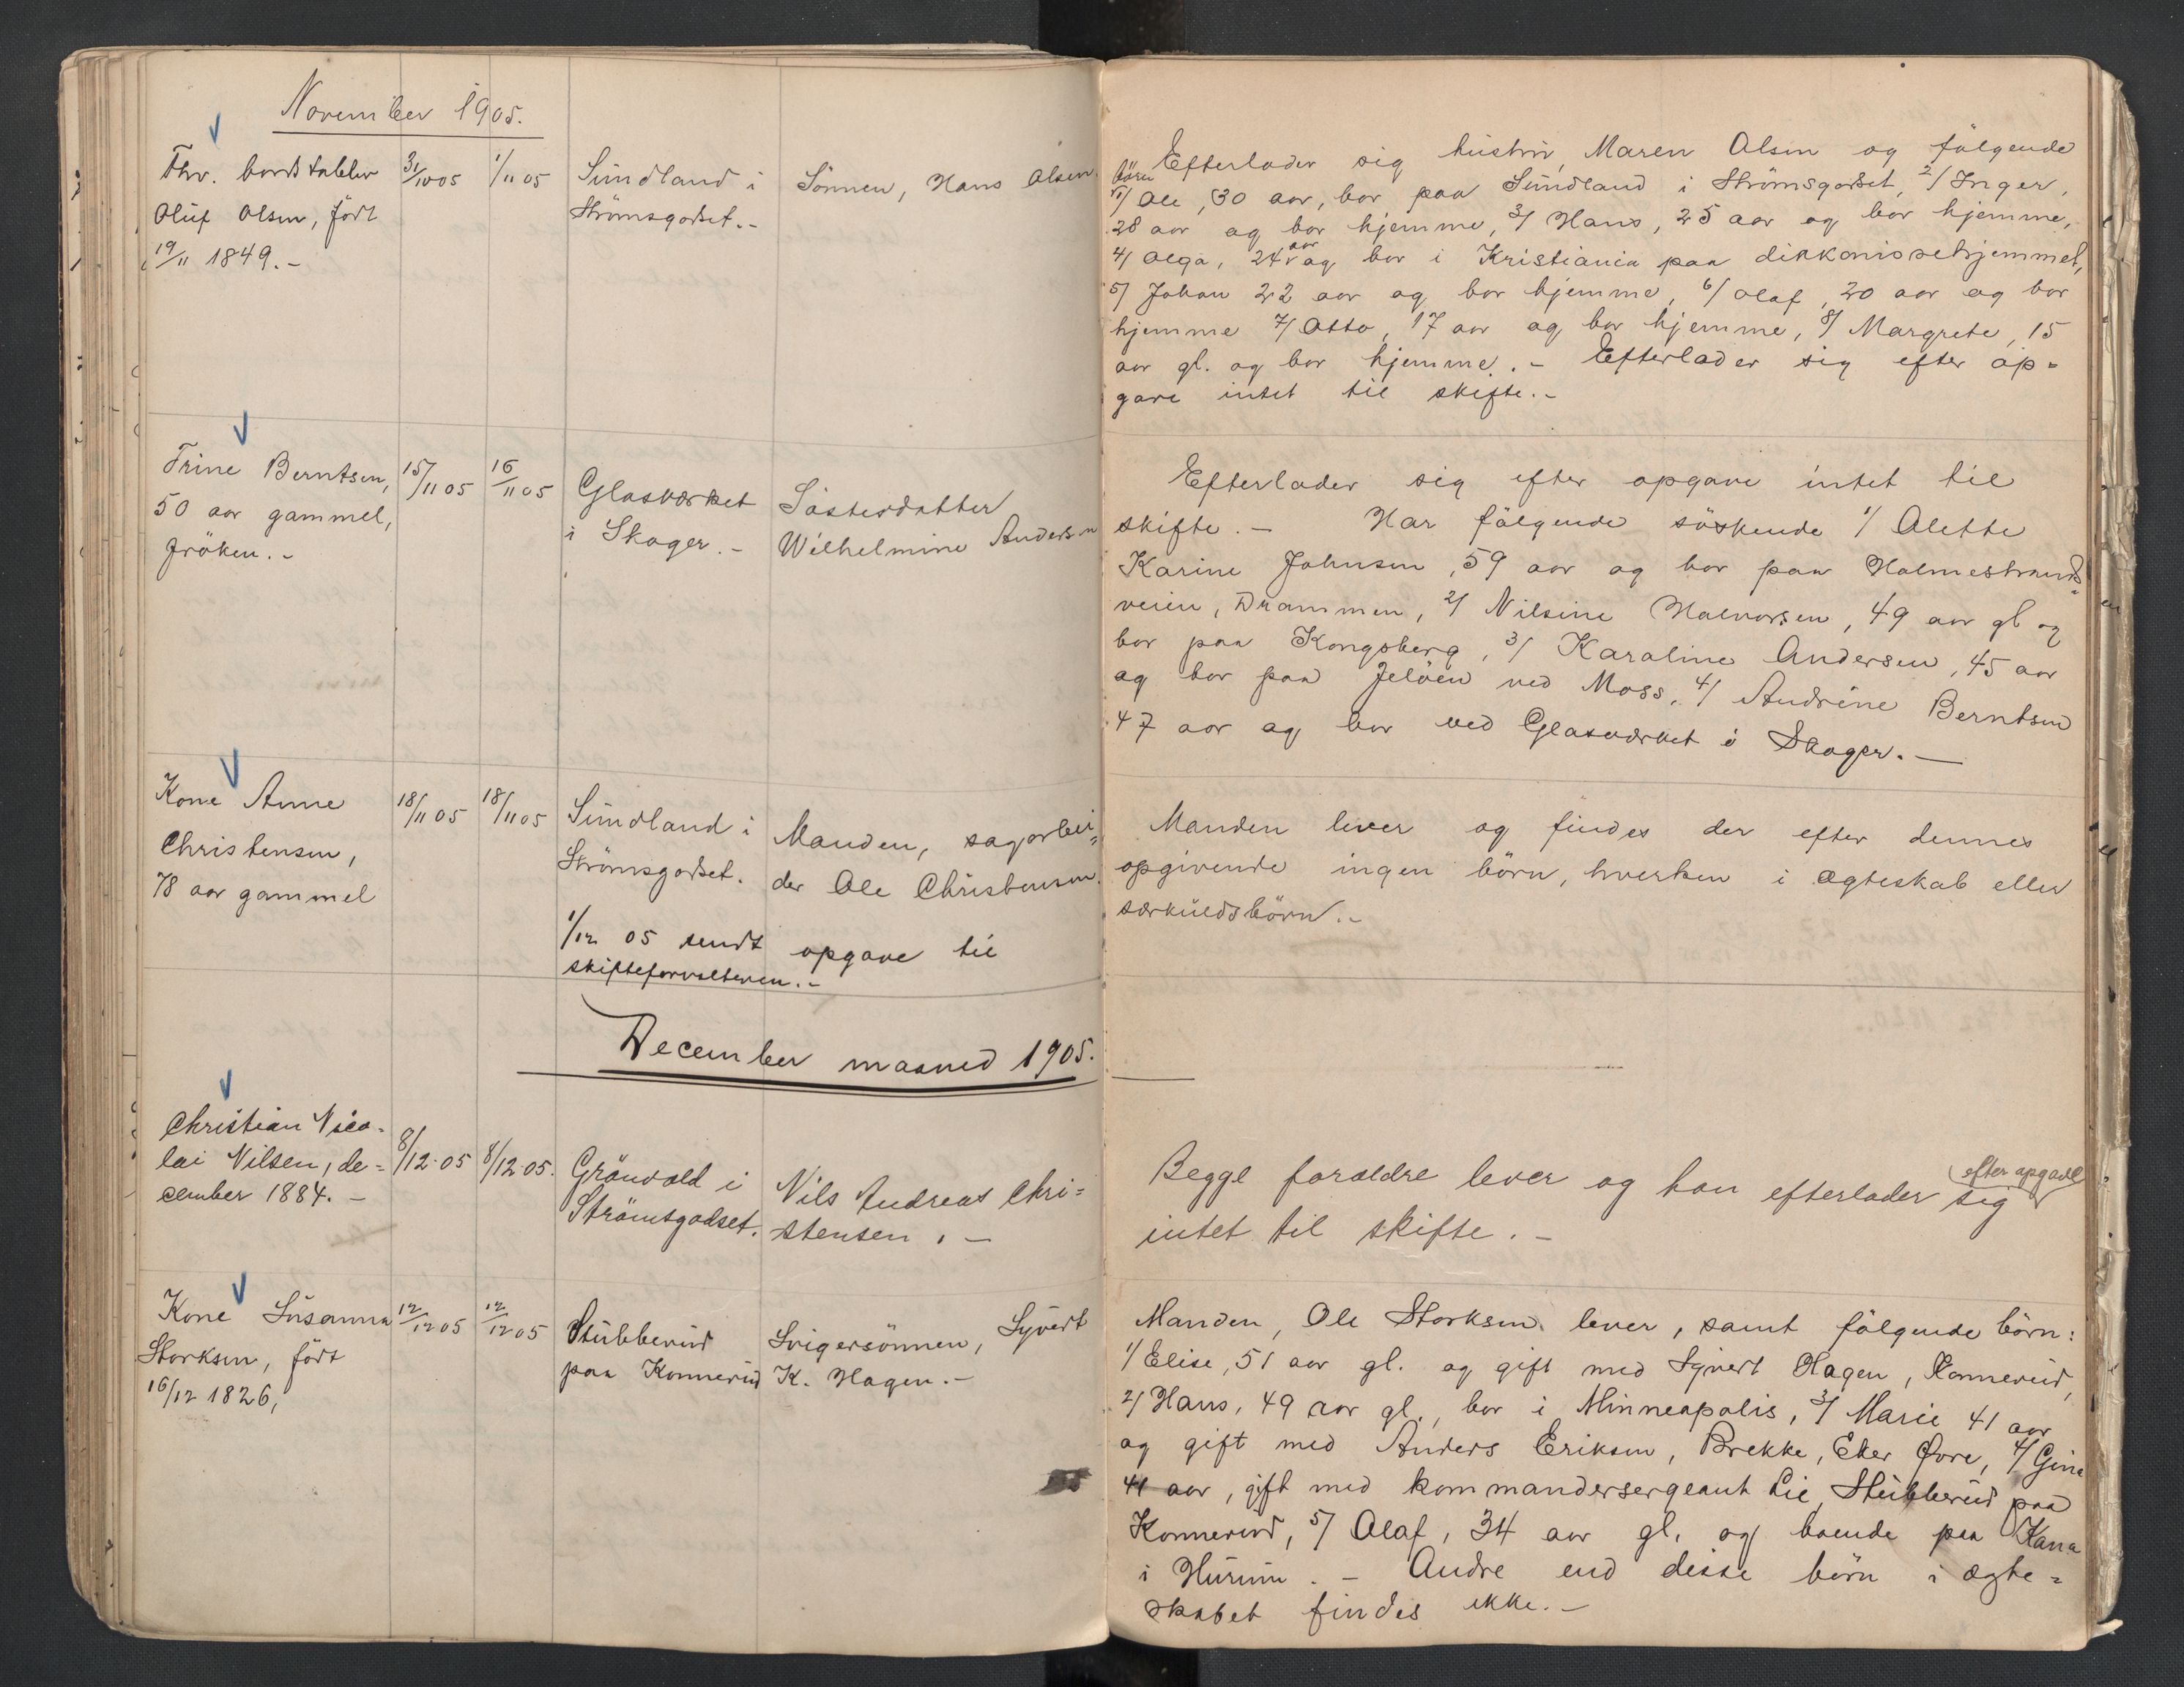 November 1905.
Fhv. bordstabler 31/10 05 1/11 05 Sundland i Sönnen, Hans Olsen.
Oluf Olsen, födt Strömsgodset.-
19/11 1849.-
Efterlader sig hustru, Maren Olsen og følgende
børn
1/ Ole, 30 aar, bor paa Sundland i Strömsgodset, 2/ Inger,
28 aar og bor hjemme, 3/ Hans, 25 aar og bor hjemme,
4/ Olga, 24 aar og bor i Kristiania paa diakonissehjemmet,
5/ Johan 22 aar og bor hjemme, 6/ Olaf, 20 aar og bor
hjemme 7/ Otto, 17 aar og bor hjemme, 8/ Margrete, 15
aar gl. og bor hjemme.- Efterlader sig efter op=
gave intet til skifte.-
Trine Berntsen, 15/11 05 16/11 05 Glasværket Søsterdatter
50 aar gammel, i Skoger.- Wilhelmine Andersen
fröken.-
Efterlader sig efter opgave intet til
skifte.- Har følgende søskende 1/ Olette
Karine Johnsen, 59 aar og bor paa Holmestrands=
veien, Drammen, 2/ Nilsine Halvorsen, 49 aar gl og
bor paa Kongsberg, 3/ Karoline Andersen, 45 aar
og bor paa Jelöen ved Moss, 4/ Andrine Berntsen
47 aar og bor ved Glasværket i Skoger.-
Kone Anne 18/11 05 18/11 05 Sundland i Manden, sagarbei=
Christensen, Strömsgodset. der Ole Christensen.
78 aar gammel
1/12 05 sendt opgave til
skifteforvalteren.-
Manden lever og findes der efter dennes
opgivende ingen börn, hverken i ægteskab eller
særkuldsbörn.-
December maaned 1905.
Christian Nico=
lai Nilsen, de= 8/12-05 8/12-05. Grönvold i Nils Andreas Chri=
cember 1884.- Strömsgodset. stensen.-
Begge foraldre lever og han efterlader sig efter opgave
intet til skifte.-
Kone Susanna 12/12 05 12/12 05 Stubberud Svigersönnen, Syvert
Storksen, født paa Konnerud K. Hagen.-
16/12 1826,
Manden, Ole Storksen lever, samt følgende børn:
1/ Elise, 51 aar gl. og gift med Syvert Hagen, Konnerud,
2/ Hans, 49 aar gl., bor i Minneapolis, 3/ Marie 41 aar
og gift med Anders Eriksen, Brekke, Eker Øvre, 4/ Gine
41 aar, gift med kommandersergeant Lie, Stubberud paa
Konnerud, 5/ Olaf, 34 aar gl. og boende paa Kana
i Hurum.- Andre end disse börn i ægte=
skabet findes ikke.-